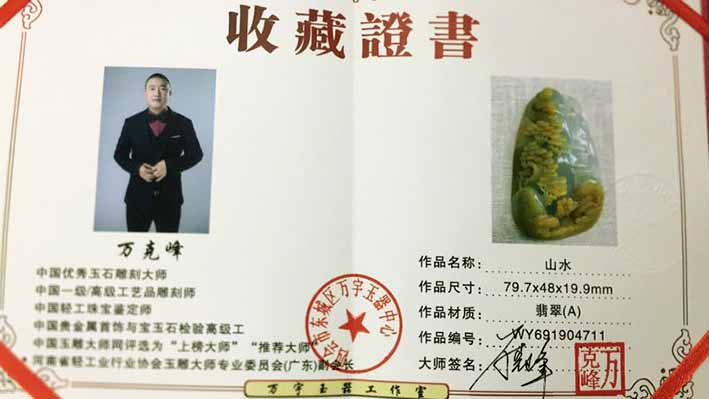 收藏證書
万克峰
中国优秀玉石雕刻大师
中国一级/高级工艺品雕刻师
中国轻工珠宝鉴定师
中国贵金属首饰与宝玉石检验高级工
中国玉雕大师网评选为“上榜大师”“推荐大师”
河南省轻工业行业协会玉雕大师专业委员会(广东)副会长
四会市东城区万宇玉器中心
作品名称: 山水
作品尺寸: 79.7x48x19.9mm
作品材质: 翡翠(A)
作品编号: WY691904711
大师签名: 万克峰
万克峰
万宇玉器工作室